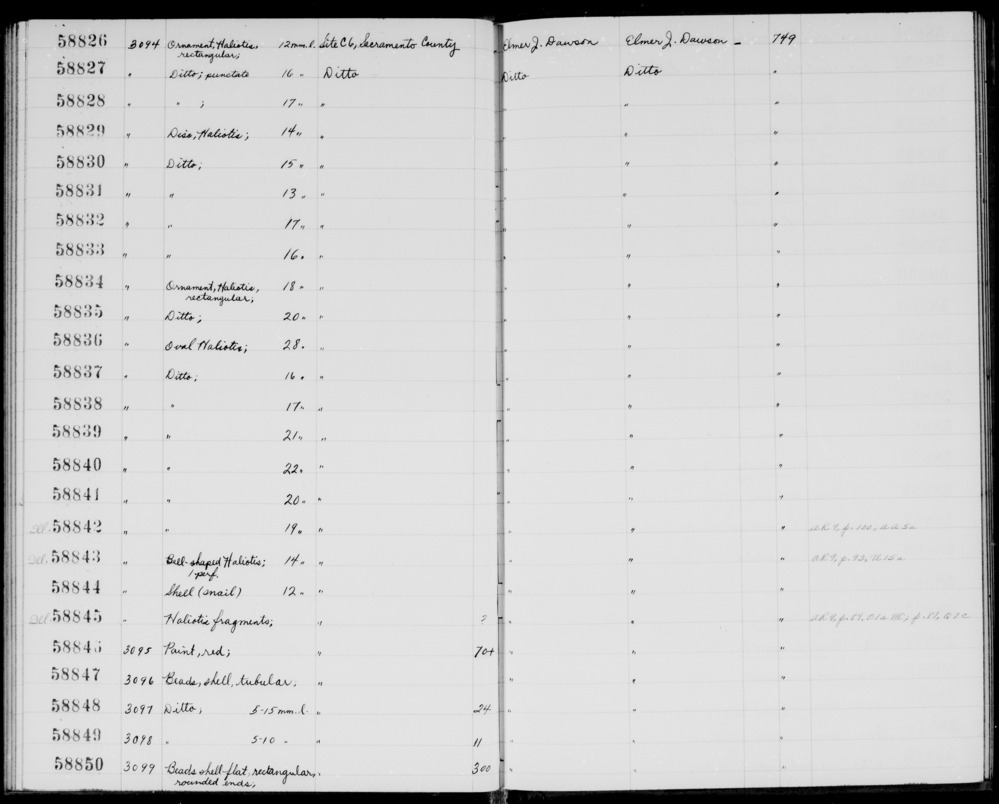 58826 3094 Ornament, Haliotis, 12mm.l. Site C6, Sacramento County Elmer J. Dawson Elmer J. Dawson – 749
rectangular;
58827 " Ditto; punctate 16 " Ditto Ditto Ditto "
58828 " " ; 17 " " " "
58829 " Disc, Haliotis; 14 " " " "
58830 " Ditto; 15 " " " " "
58831 " " 13 " " " " "
58832 " " 17 " " " " "
58833 " " 16 " " " " "
58834 " Ornament, Haliotis, 18 " " " " "
rectangular;
58835 " Ditto; 20 " " " " "
58836 Oval Haliotis; 28 " " " " "
58837 " Ditto; 16 " " " " "
58838 " " 17 " " " " "
58839 " " 21 " " " " "
58840 " " 22 " " " " "
58841 " " 20 " " " " "
58842 " " 19 " " " "
58843 " Bell-shaped Haliotis; 14 " " " " "
1 perf.
58844 " Shell (snail) 12 " " " "
Ill. 58845 " Haliotis fragments; " ? " " "
58846 3095 Paint, red; " 70+ " " "
58847 3096 Beads, shell, tubular; " " " "
58848 3097 Ditto, 5-15 mm.l. " 24 " " "
58849 3098 " 5-10 " " 11 " " "
58850 3099 Beads shell-flat, rectangular, " 300 " " "
rounded ends;